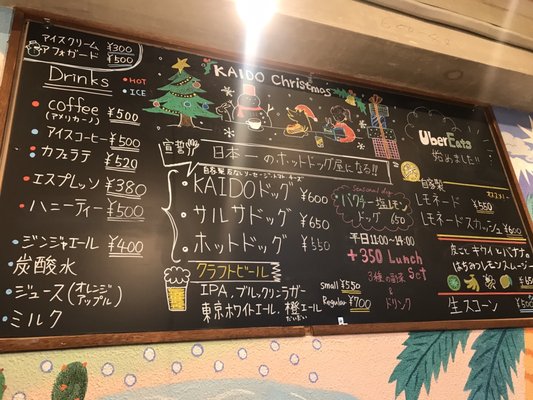 アイスクリーム ¥300
アフォガード ¥500
Drinks
HOT
ICE
coffee ¥500
(アメリカーノ)
アイスコーヒー ¥500
カフェラテ ¥520
エスプレッソ ¥380
ハニーティー ¥500
ジンジャエール ¥400
炭酸水
ジュース(オレンジ
アップル)
ミルク
KAIDO Christmas
宣誓!!
日本一のホットドッグ屋になる!!
KAIDOドッグ ¥600
サルサドッグ ¥650
ホットドッグ ¥550
クラフトビール
IPA、ブルックリンラガー
東京ホワイトエール、橙エール
だいだい
Small ¥550
Regular ¥700
Seasonal dog
パクチー塩レモン
ドッグ 650
平日11:00-14:00
+350 Lunch
Set
3種の副菜
&
ドリンク
UberEats
始めました!!
自家製
レモネード ¥550
レモネードスカッシュ ¥600
皮ごとキウイとバナナ。
はちみつレモンスムージー
¥650
生スコーン